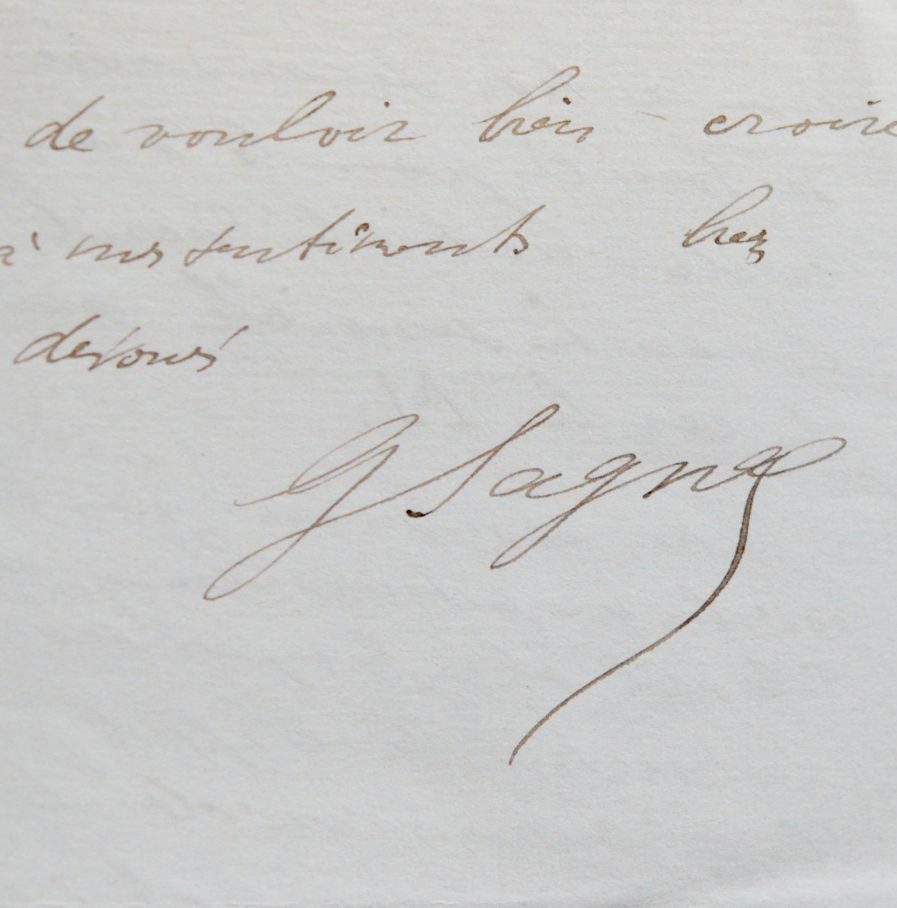 de vouloir bien croire
à mes sentiments bien
dévoués
G Sagnac